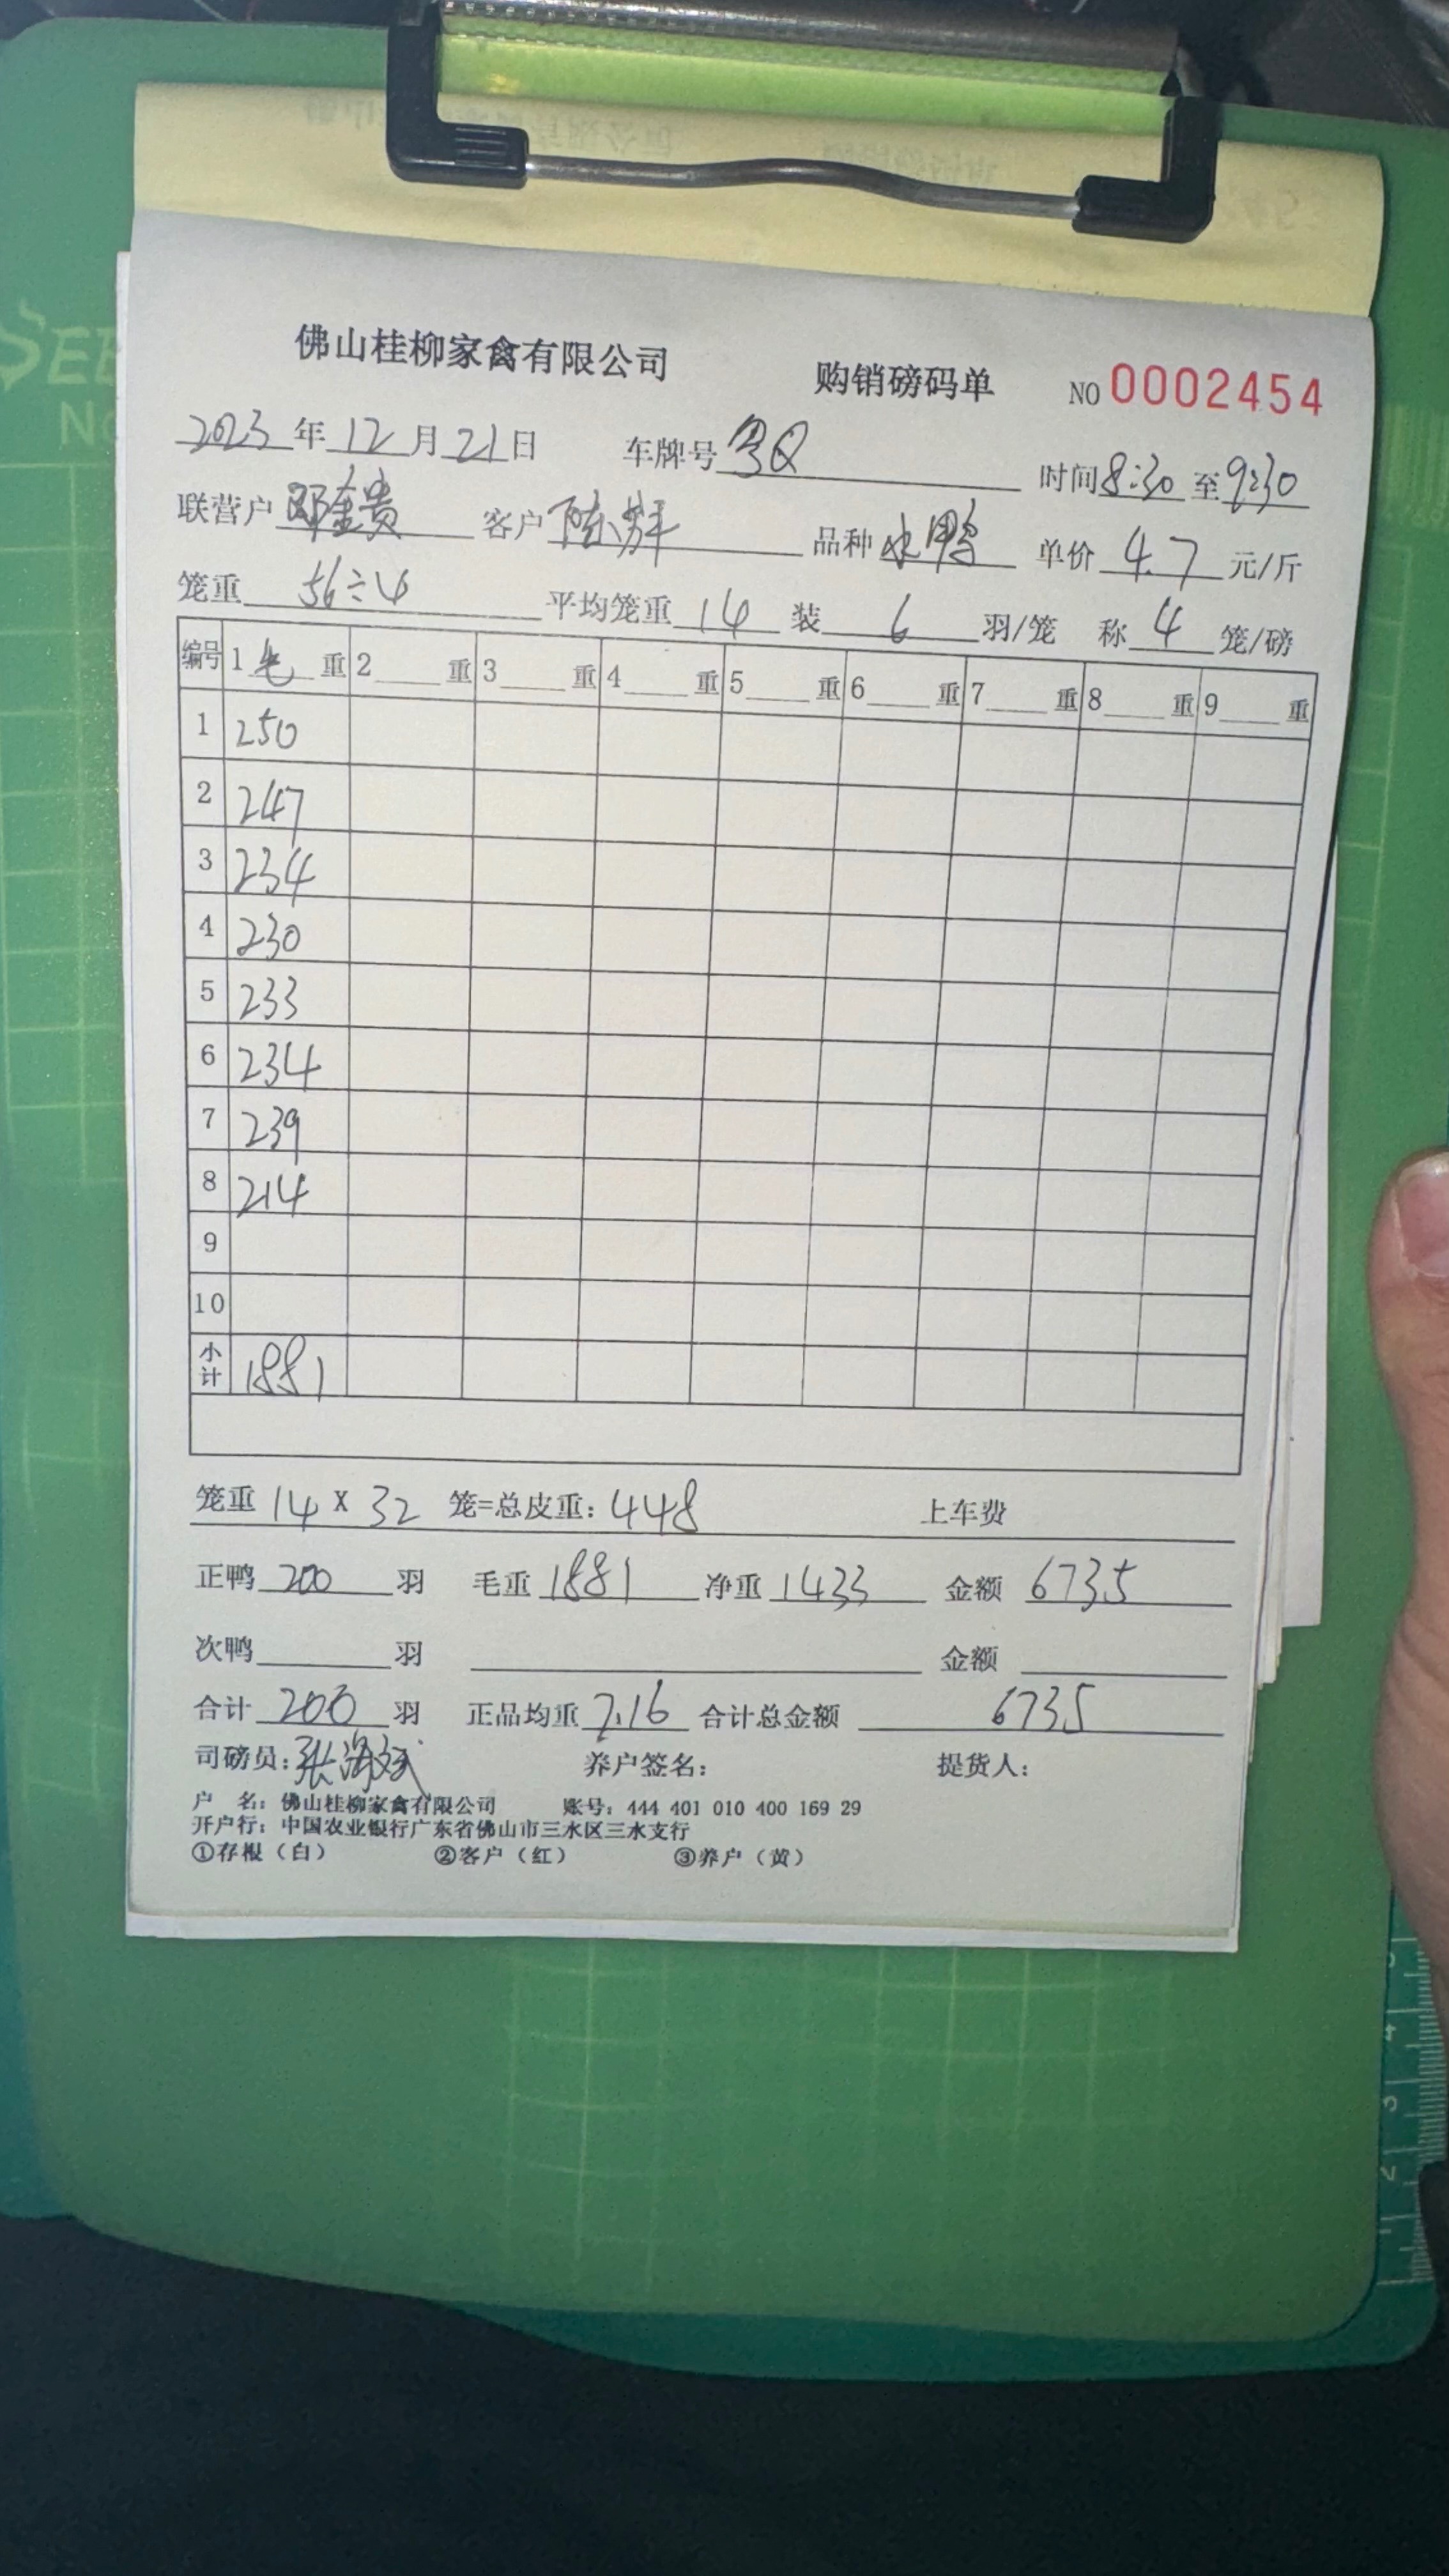 佛山桂柳家禽有限公司 购销磅码单 NO 0002454
2023年12月21日 车牌号 粤Q 时间8:30至9:30
联营户 邓金贵 客户 陈 品种 水鸭 单价 4.7 元/斤
笼重 56÷4 平均笼重 14 装 6 羽/笼 称 4 笼/磅
编号 1 毛 重 2 重 3 重 4 重 5 重 6 重 7 重 8 重 9 重
1 250
2 247
3 234
4 230
5 233
6 234
7 239
8 214
9
10
小计 1881
笼重 14 X 32 笼=总皮重: 448 上车费
正鸭 200 羽 毛重 1881 净重 1433 金额 6735
次鸭 羽 金额
合计 200 羽 正品均重 7.16 合计总金额 6735
司磅员: 张海 养户签名: 提货人:
户 名: 佛山桂柳家禽有限公司 账号: 444 401 010 400 169 29
开户行: 中国农业银行广东省佛山市三水区三水支行
①存根（白） ②客户（红） ③养户（黄）